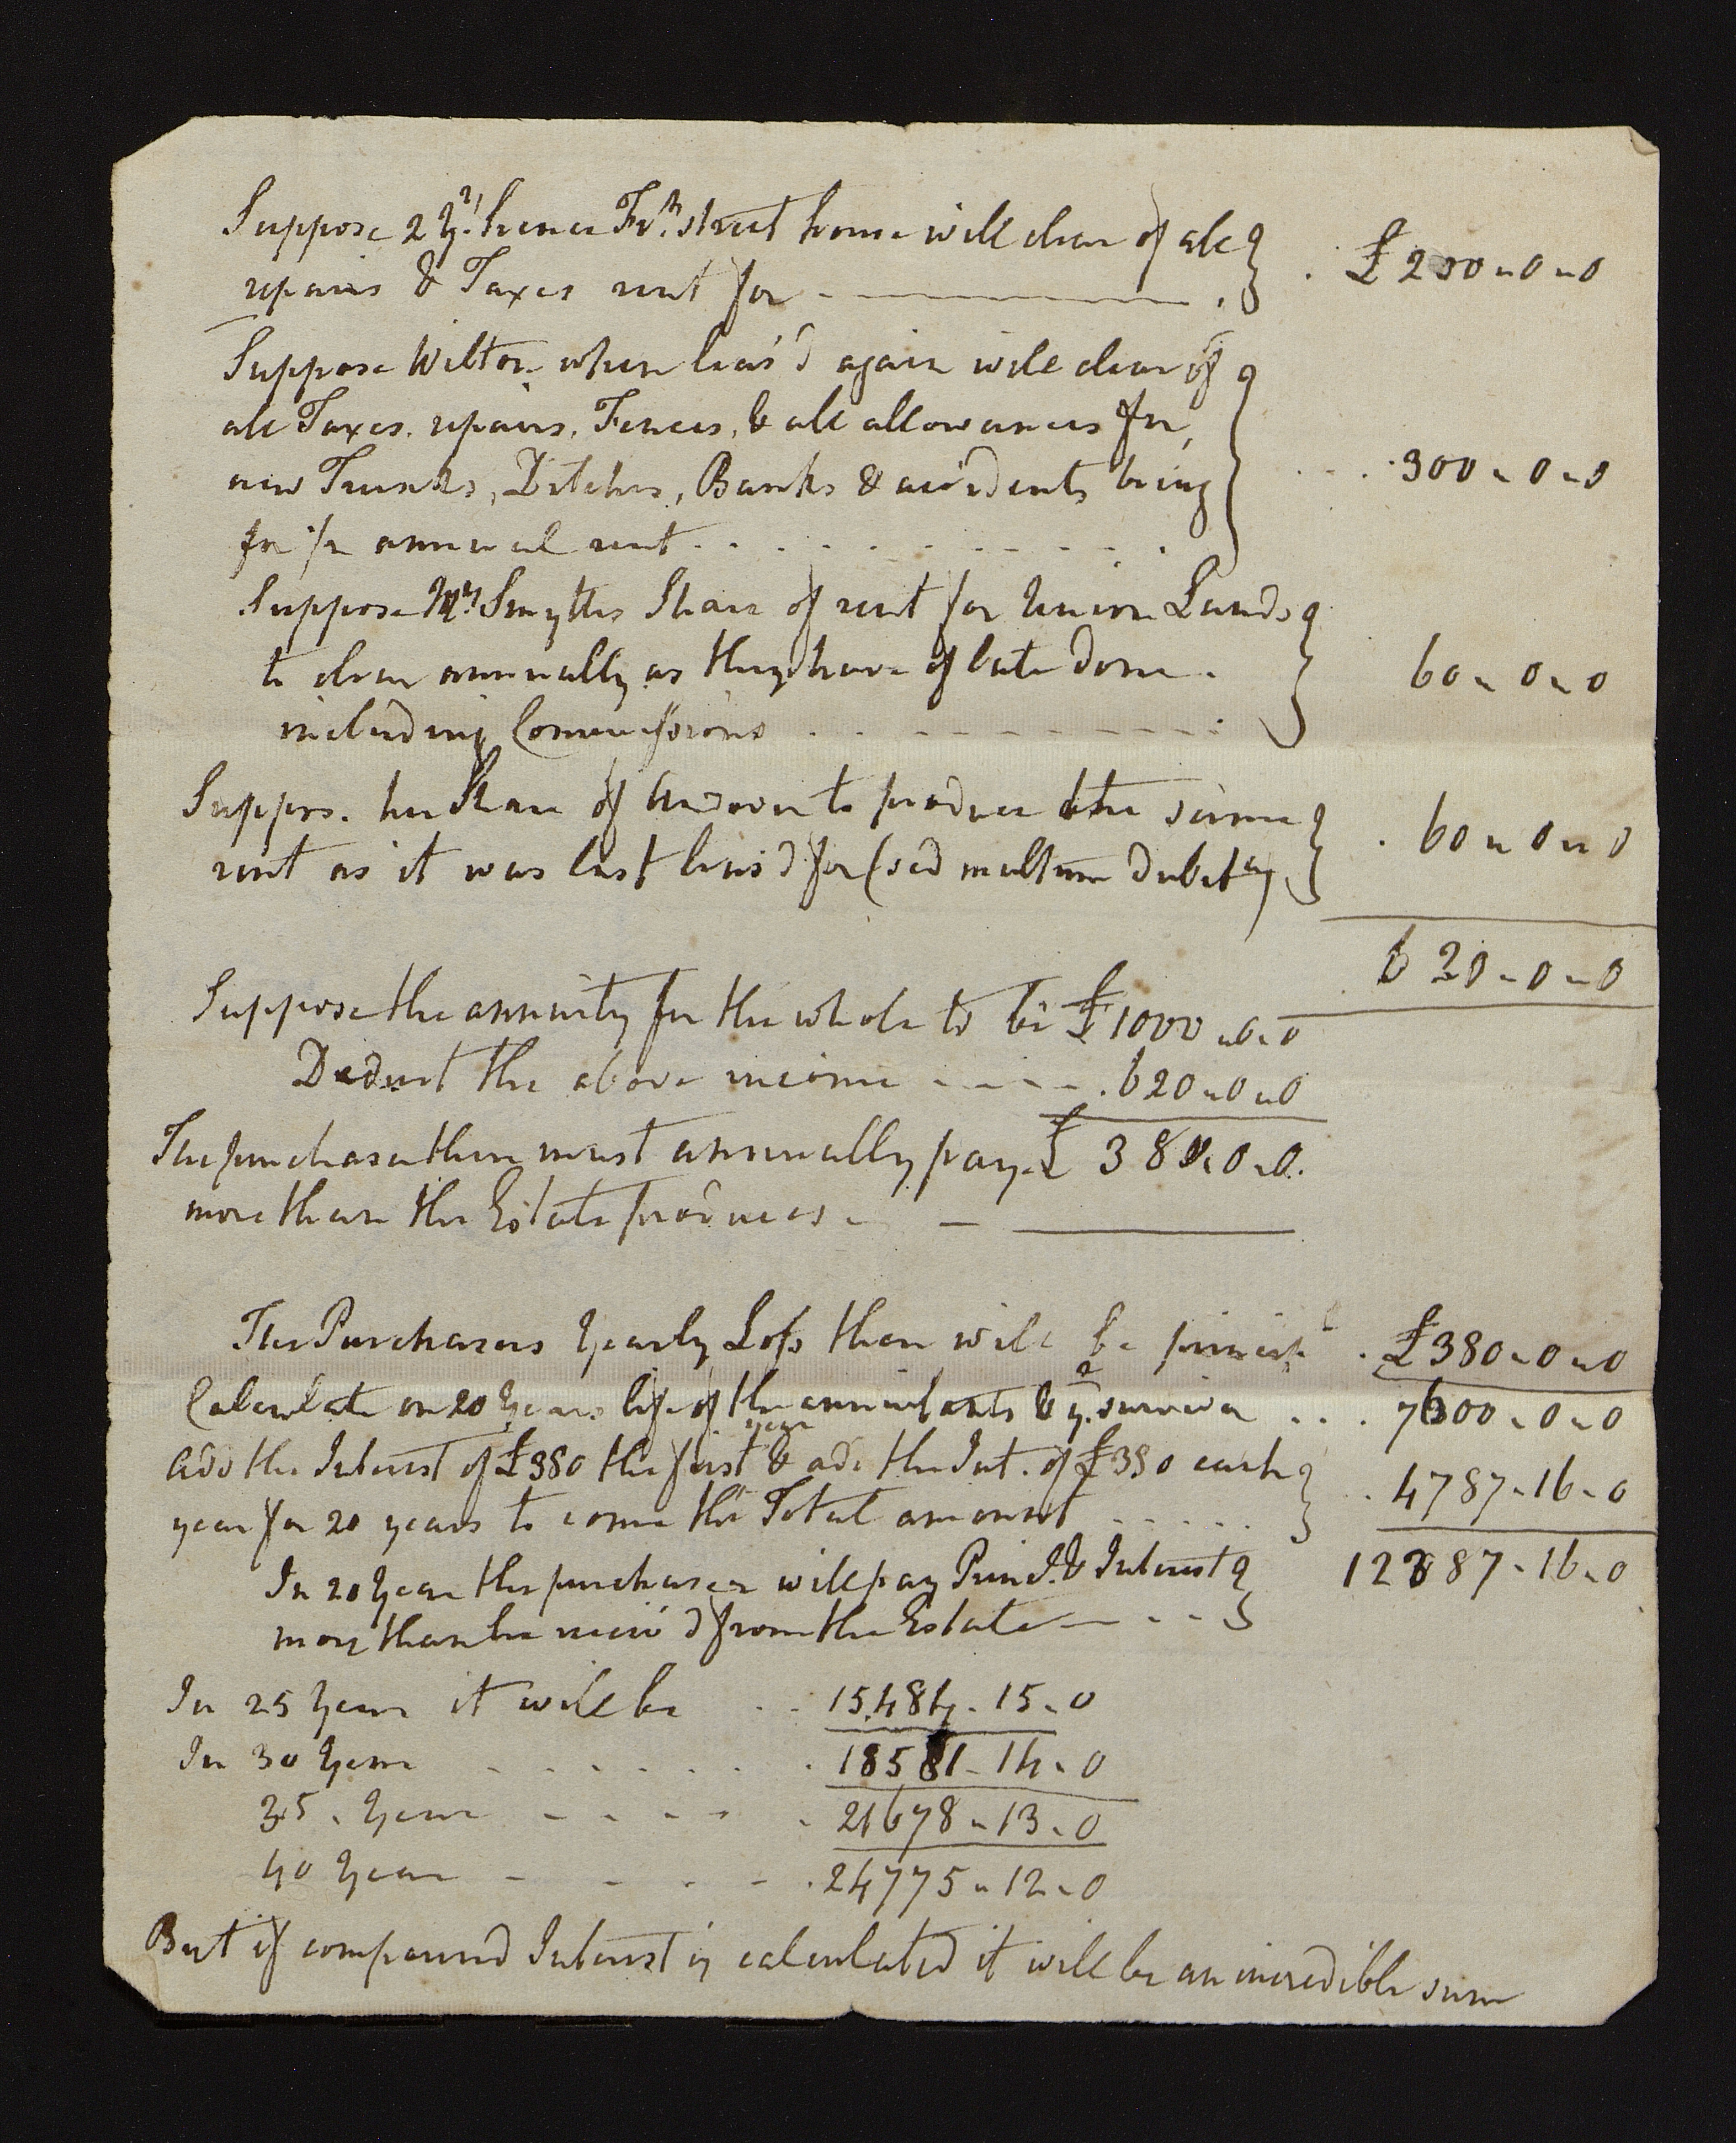 Suppose 2 Yrs. hence Frt. street house will clear of all } . £200 " 0 " 0
repairs & Taxes rent for - .
Suppose Wilton when leas'd again will clear of
all Taxes. repairs. Fences, & all allowances for
new Trunks, Ditches, Banks & accidents being } 300 " 0 " 0
for ye annual rent . . . . . . . .
Suppose Mrs Smyths Share of rent for Union Lands
to clear annually as they have of late done . } 60 " 0 " 0
including Commissions . . . . . . .
Suppos. her Share of Andover to produce the same } . 60 " 0 " 0
rent as it was last leas'd for (sed multum dubito)
620 " 0 " 0
Suppose the annuity for the whole to be £1000 " 0 " 0
Deduct the above income - - - - . 620 " 0 " 0
The purchaser then must annually pay £ 380 " 0 " 0.
more than the Estate produces -
The Purchasers Yearly Loss then will be princip.l . £380 " 0 " 0
Calculate on 20 Years life of the annuitants & ye. survivor . . . 7600 " 0 " 0
add the Interest of £380 the first year & add the Int. of £380 each } . 4787 " 16 " 0
year for 20 years to come the Total amount . . . . .
In 20 Years the purchaser will pay Prind. & Interest } 12387 " 16 " 0
more than he receiv'd from the Estate - - -
In 25 Years it will be . . 15,484 " 15 " 0
In 30 Years . . . . . . 18581 " 14 " 0
35 . Years - - - - . 21678 " 13 " 0
40 Years - - - - . 24775 " 12 " 0
But if compound Interest is calculated it will be an incredible sum